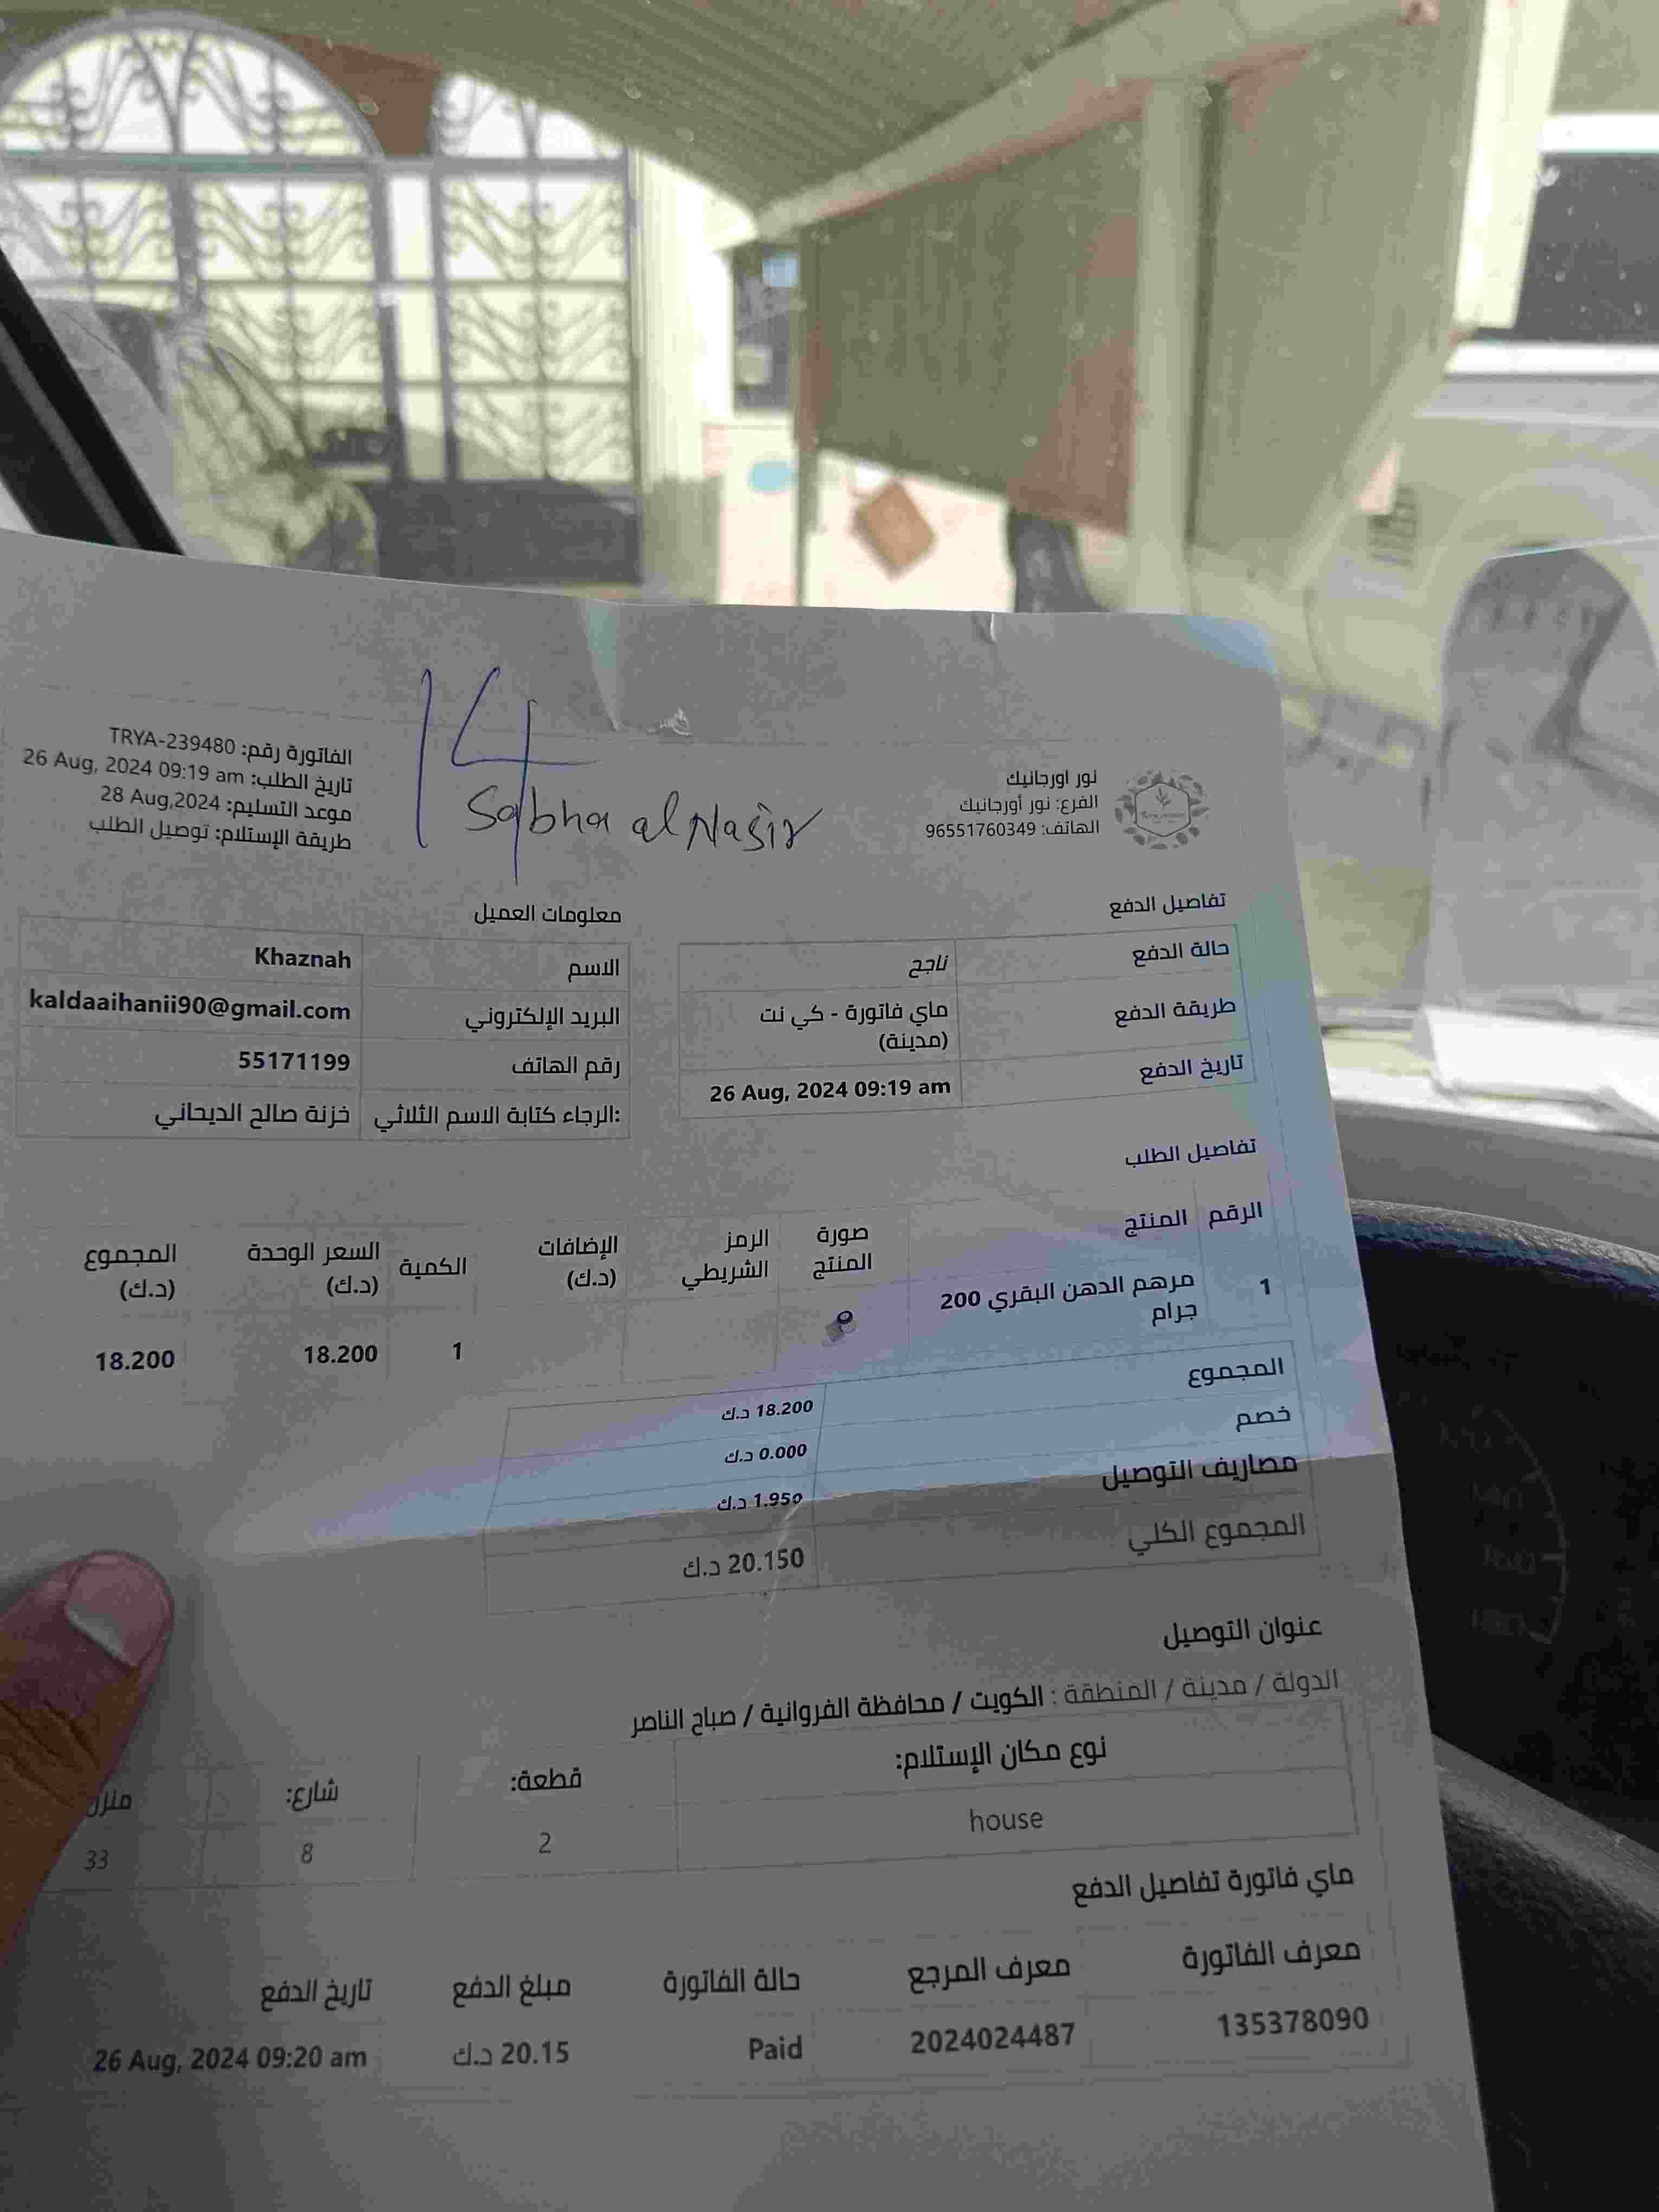 14
Sabha al Nasir
نور اورجانيك
الفرع: نور أورجانيك
الهاتف: 96551760349
الفاتورة رقم: TRYA-239480
تاريخ الطلب: 26 Aug, 2024 09:19 am
موعد التسليم: 28 Aug,2024
طريقة الإستلام: توصيل الطلب
تفاصيل الدفع
حالة الدفع ناجح
طريقة الدفع ماي فاتورة - كي نت
(مدينة)
تاريخ الدفع 26 Aug, 2024 09:19 am
معلومات العميل
الاسم Khaznah
البريد الإلكتروني kaldaaihanii90@gmail.com
رقم الهاتف 55171199
الرجاء كتابة الاسم الثلاثي: خزنة صالح الديحاني
تفاصيل الطلب
الرقم المنتج صورة المنتج الرمز الشريطي الإضافات (د.ك) الكمية السعر الوحدة (د.ك) المجموع (د.ك)
1 مرهم الدهن البقري 200 جرام 1 18.200 18.200
المجموع 18.200 د.ك
خصم 0.000 د.ك
مصاريف التوصيل 1.950 د.ك
المجموع الكلي 20.150 د.ك
عنوان التوصيل
الدولة / مدينة / المنطقة : الكويت / محافظة الفروانية / صباح الناصر
نوع مكان الإستلام: قطعة: شارع:
house 2 8 33
ماي فاتورة تفاصيل الدفع
معرف الفاتورة معرف المرجع حالة الفاتورة مبلغ الدفع تاريخ الدفع
135378090 2024024487 Paid 20.15 د.ك 26 Aug, 2024 09:20 am